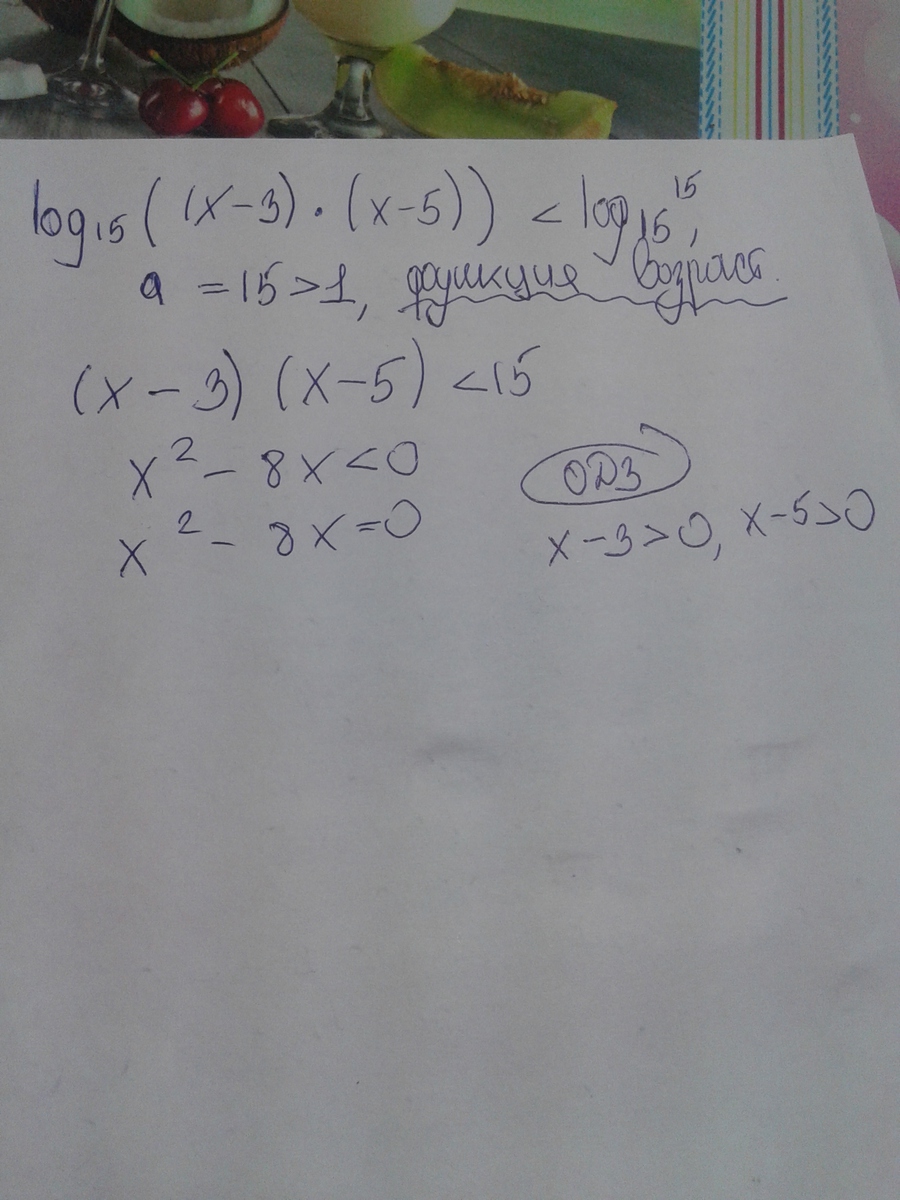 log₁₅((x-3)·(x-5)) < log₁₅15,
a = 15 > 1, функция возраст.
(x-3)(x-5) < 15
x² - 8x < 0
ОДЗ
x² - 8x = 0
x-3>0, x-5>0